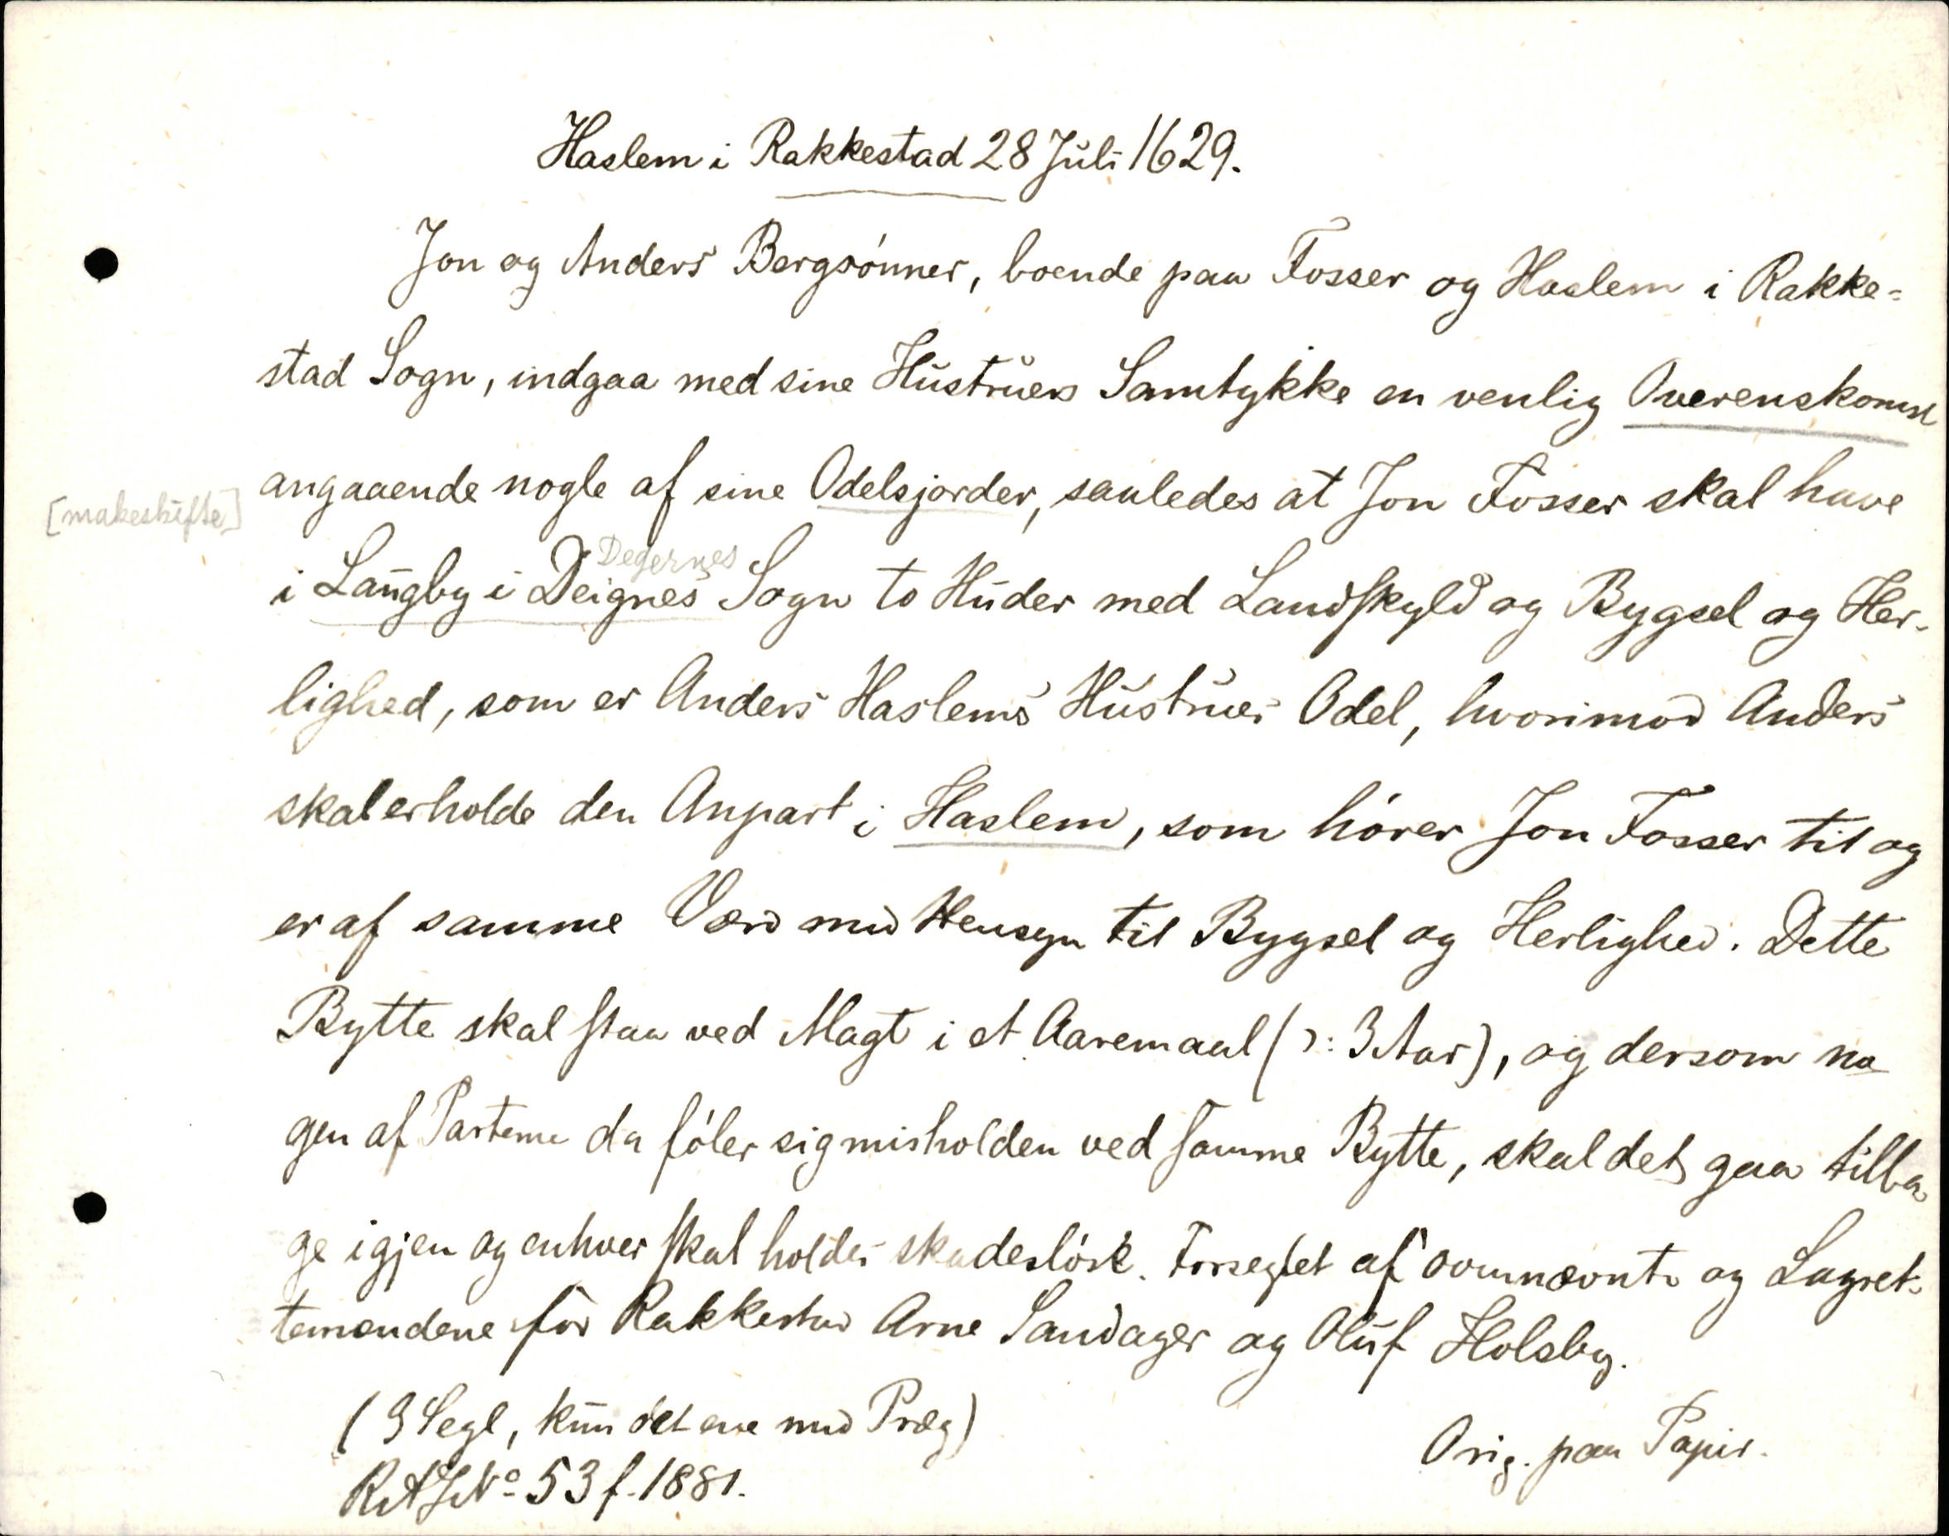 Haslem i Rakkestad 28 Juli 1629.
Jon og Anders Bergsönner, boende paa Fosser og Haslem i Rakke-
stad Sogn, indgaa med sine Hustruers Samtykke en venlig Overenskomst
angaaende nogle af sine Odelsjorder, saaledes at Jon Fosser skal have
[makeskifte]
Degernes
i Langby i Deignes Sogn to Huder med Landskyld og Bygsel og Her-
lighed, som er Anders Haslems Hustrues Odel, hvorimod Anders
skal erholde den Anpart i Haslem, som hörer Jon Fosser til og
er af samme Værd med Hensyn til Bygsel og Herlighed. Dette
Bytte skal staa ved Magt i et Aaremaal (ɔ: 3 Aar), og dersom no
gen af Parterne da föler sig misholden ved samme Bytte, skal det gaa tilba
ge igjen og enhver skal holdes skadeslös. Forseglet af ovennævnte og Lagret-
temændene för Rakkestad Arne Sandager og Oluf Holsby.
(3 Segl, kun det ene med Præg)
Orig. paa Papir.
RA JNº 53 f. 1881.